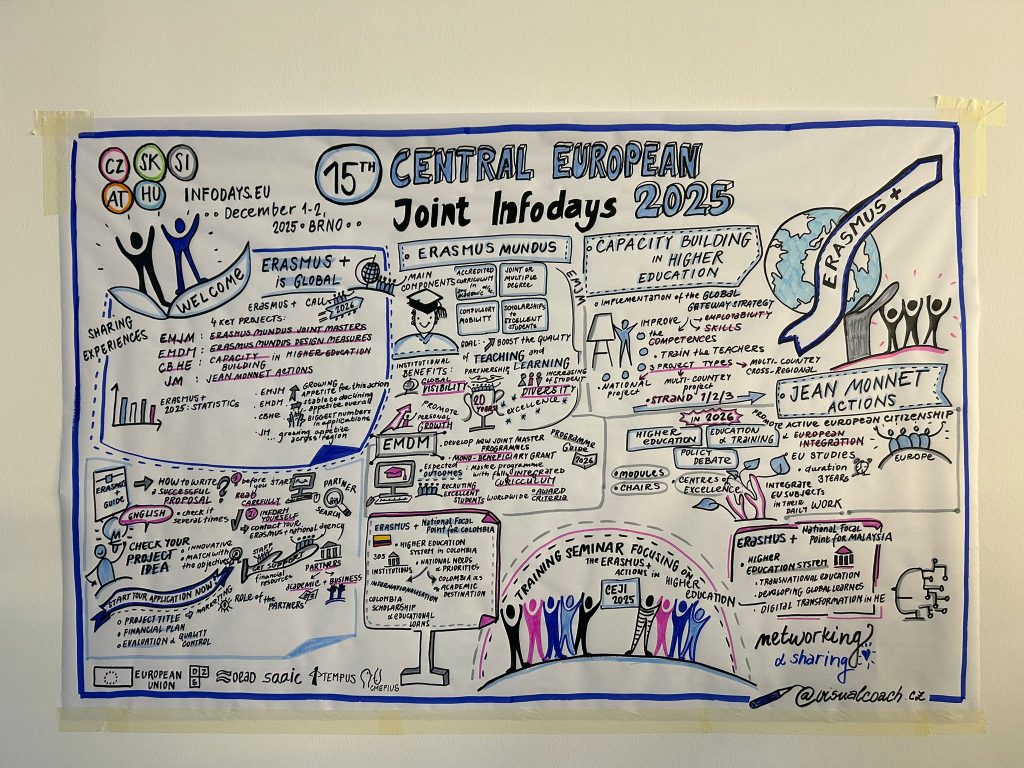 CZ SK SI
AT HU
INFODAYS.EU
December 1-2,
2025 • BRNO
15TH CENTRAL EUROPEAN
Joint Infodays 2025
WELCOME
SHARING
EXPERIENCES
ERASMUS +
IS GLOBAL
ERASMUS + CALL 2026
4 KEY PROJECTS:
EMJM: ERASMUS MUNDUS JOINT MASTERS
EMDM: ERASMUS MUNDUS DESIGN MEASURES
CBHE: CAPACITY BUILDING IN HIGHER EDUCATION
JM: JEAN MONNET ACTIONS
ERASMUS +
2025: STATISTICS
EMJM GROWING APPETITE for this action
EMDM stable to declining appetite overall
CBHE BIGGEST NUMBERS in applications
JM growing appetite across region
ERASMUS MUNDUS
EMJM
MAIN
COMPONENTS
ACCREDITED
CURRICULUM
JOINT OR
MULTIPLE
DEGREE
COMPULSORY
MOBILITY
SCHOLARSHIPS
to EXCELLENT
STUDENTS
GOAL: BOOST the QUALITY
of TEACHING and
LEARNING
INSTITUTIONAL
BENEFITS:
GLOBAL
VISIBILITY
PARTNERSHIP
20
YEARS
INCREASING
of STUDENT
DIVERSITY
EXCELLENCE
PROMOTE
PERSONAL
GROWTH
EMDM
DEVELOP NEW JOINT MASTER
PROGRAMMES
MONO-BENEFICIARY GRANT
Expected
OUTCOMES
Master programme
with fully INTEGRATED
CURRICULUM
RECRUTING
EXCELLENT
STUDENTS WORLDWIDE
AWARD
CRITERIA
PROGRAMME
GUIDE
2026
CAPACITY BUILDING
IN HIGHER
EDUCATION
IMPLEMENTATION of the GLOBAL
GATEWAY STRATEGY
IMPROVE the
COMPETENCES
EMPLOYABILITY
SKILLS
TRAIN the TEACHERS
3 PROJECT TYPES
NATIONAL
PROJECT
MULTI-COUNTRY
PROJECT
MULTI-COUNTRY
CROSS-REGIONAL
STRAND 1/2/3
ERASMUS +
JEAN MONNET
ACTIONS
IN 2026
HIGHER
EDUCATION
EDUCATION
& TRAINING
POLICY
DEBATE
MODULES
CHAIRS
CENTRES of
EXCELLENCE
PROMOTE ACTIVE EUROPEAN CITIZENSHIP
& EUROPEAN
INTEGRATION
EU STUDIES
duration
3 YEARS
EUROPE
INTEGRATE
EU SUBJECTS
IN THEIR
DAILY WORK
ERASMUS
GUIDE
HOW TO WRITE
SUCCESSFUL
PROPOSAL
ENGLISH
check it
several times
before you START
READ
CAREFULLY
INFORM
YOURSELF
contact your
Erasmus+ national agency
PARTNER
SEARCH
CHECK YOUR
PROJECT
IDEA
INNOVATIVE
MATCH with
the objectives
START
GET SUPPORT
financial
resources
PARTNERS
ACADEMIC
BUSINESS
START YOUR APPLICATION NOW!
MARKETING
ROLE of the
PARTNERS
PROJECT TITLE
FINANCIAL PLAN
EVALUATION & QUALITY
CONTROL
ERASMUS + National Focal
Point for COLOMBIA
HIGHER EDUCATION
System in COLOMBIA
303
INSTITUTIONS
NATIONAL NEEDS
& PRIORITIES
INTERNATIONALISATION
COLOMBIA as
ACADEMIC
DESTINATION
COLOMBIA
SCHOLARSHIP
& EDUCATIONAL
LOANS
TRAINING SEMINAR FOCUSING ON
THE ERASMUS+
ACTIONS in HIGHER
EDUCATION
CEJI
2025
ERASMUS + National Focal
Point for MALAYSIA
HIGHER
EDUCATION SYSTEM
TRANSNATIONAL EDUCATION
DEVELOPING GLOBAL LEARNERS
DIGITAL TRANSFORMATION IN HE
networking
& sharing
EUROPEAN
UNION
DZS
oead saaic TEMPUS CMEPIUS
@visualcoach.cz